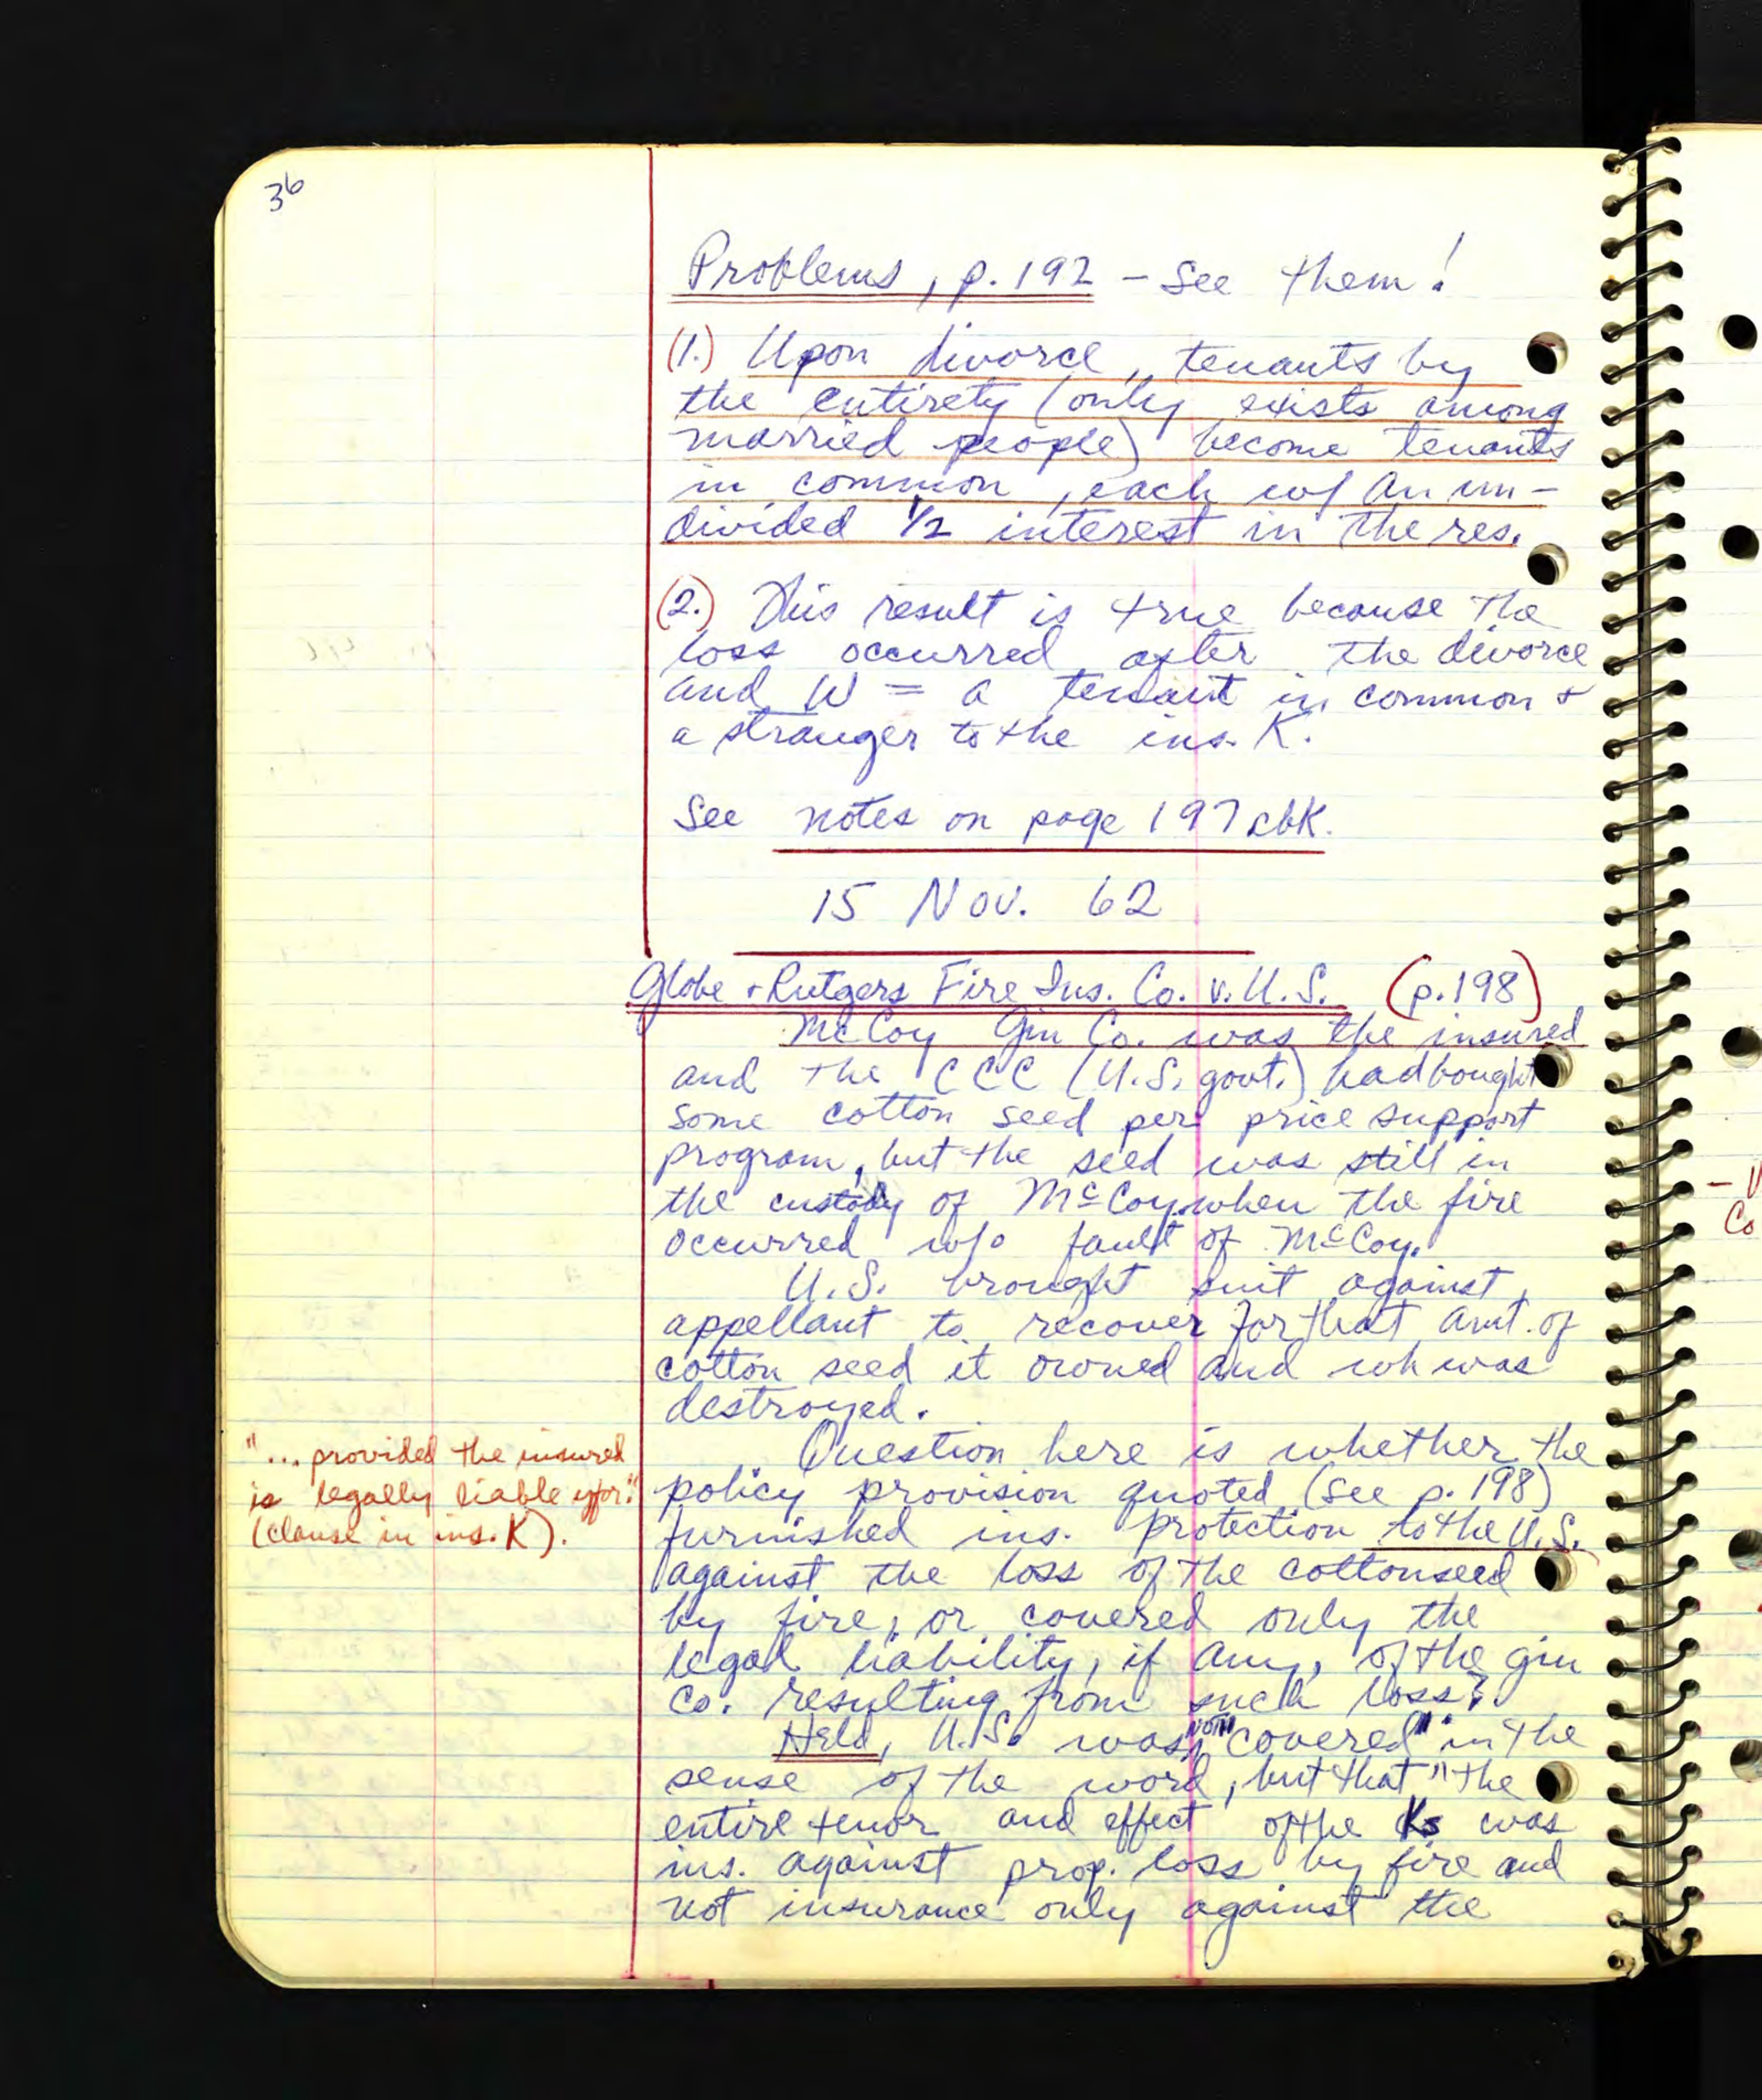 36
Problems, p. 192 – See them!
(1.) Upon divorce, tenants by
the entirety (only exists among
married people) become tenants
in common, each w/ an un-
divided 1/2 interest in the res.
(2.) This result is true because the
loss occurred after the divorce
and W = a tenant in common +
a stranger to the ins. K.
See notes on page 197 cbk.
15 Nov. 62
Globe + Rutgers Fire Ins. Co. v. U.S. (p.198)
McCoy Gin Co. was the insured
and the CCC (U.S. govt.) had bought
some cotton seed per price support
program, but the seed was still in
the custody of McCoy when the fire
occurred w/o fault of McCoy.
U.S. brought suit against
appellant to recover for that amt. of
cotton seed it owned and wh was
destroyed.
Question here is whether the
"... provided the insured
is legally liable
(clause in ins. K).
policy provision quoted (see p. 198)
furnished ins. protection to the U.S.
against the loss of the cottonseed
by fire, or covered only the
legal liability, if any, of the gin
Co. resulting from such loss?
Held, U.S. was NOT "covered" in the
sense of the word, but that "the
entire tenor and effect of the Ks was
ins. against prop. loss by fire and
not insurance only against the
– 
Co